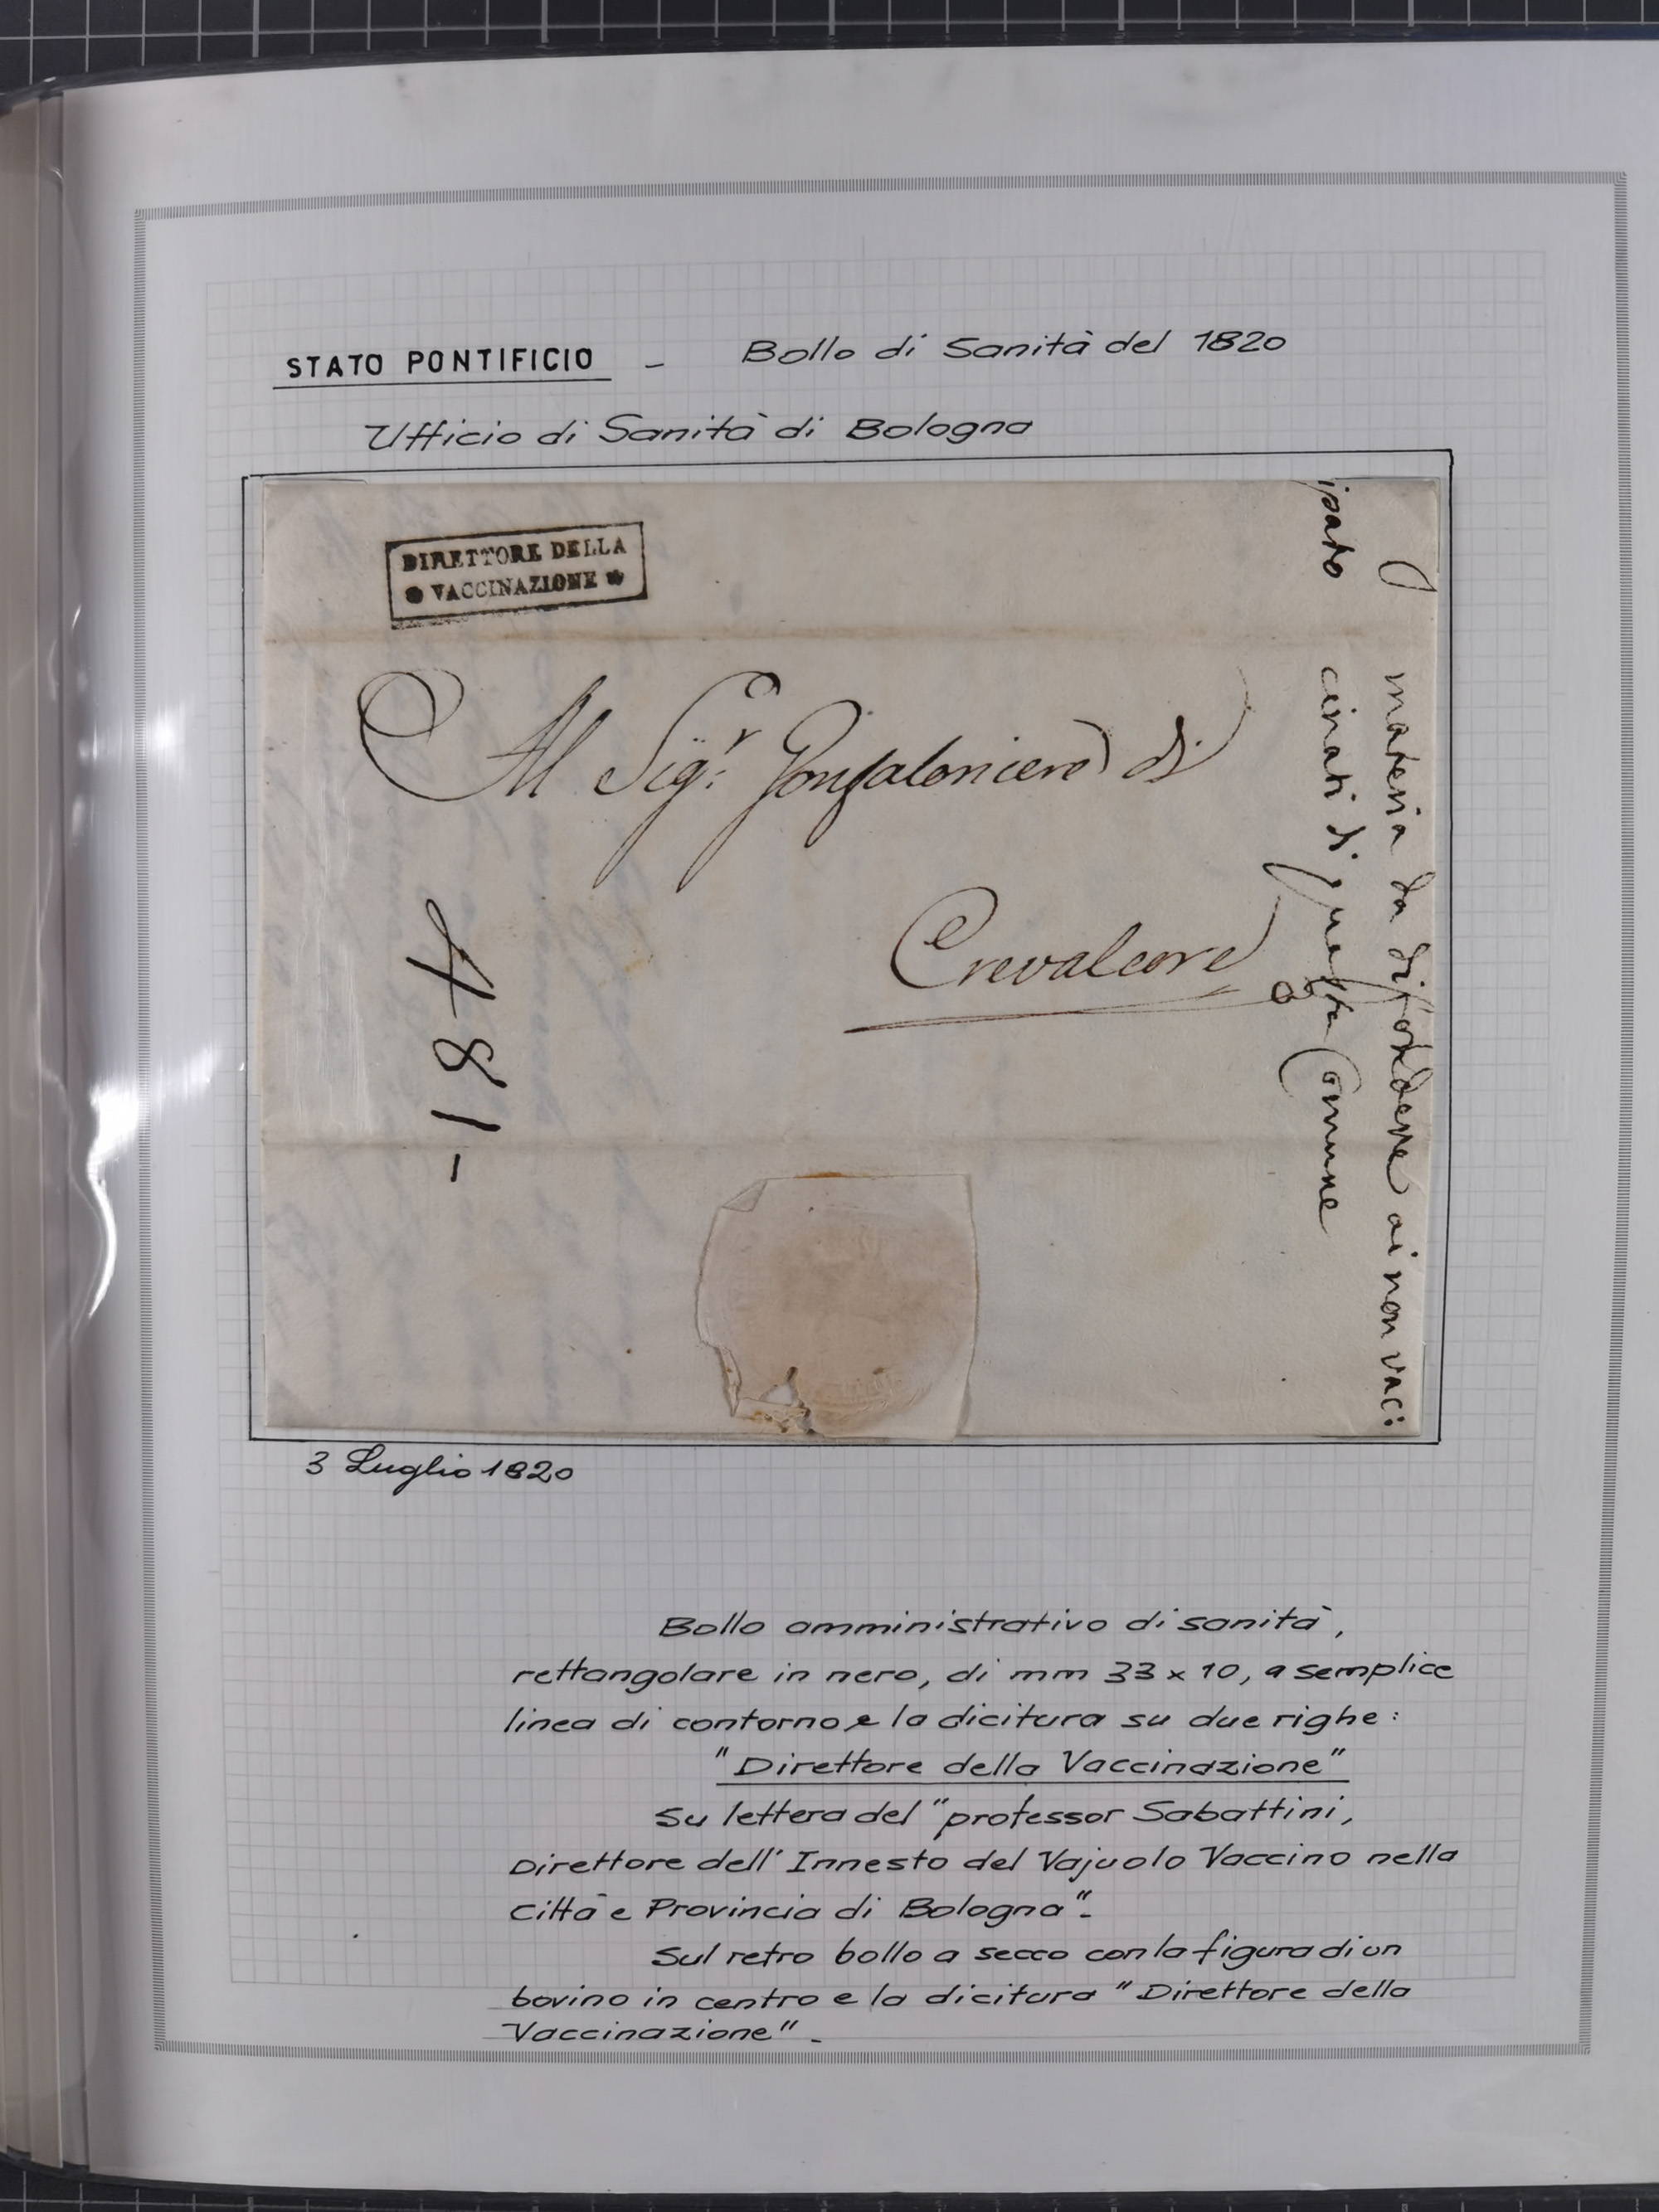 STATO PONTIFICIO - Bollo di Sanità del 1820
Ufficio di Sanità di Bologna
DIRETTORE DELLA
VACCINAZIONE
Al Sigr. Gonfaloniere di
Crevalcore
481-
ipato
materia da diffondere ai non vac:
cinati di questa Comune
3 Luglio 1820
Bollo amministrativo di sanità,
rettangolare in nero, di mm 33 x 10, a semplice
linea di contorno e la dicitura su due righe:
"Direttore della Vaccinazione"
Su lettera del "professor Sabattini,
Direttore dell'Innesto del Vajuolo Vaccino nella
Città e Provincia di Bologna".-
Sul retro bollo a secco con la figura di un
bovino in centro e la dicitura "Direttore della
Vaccinazione".-